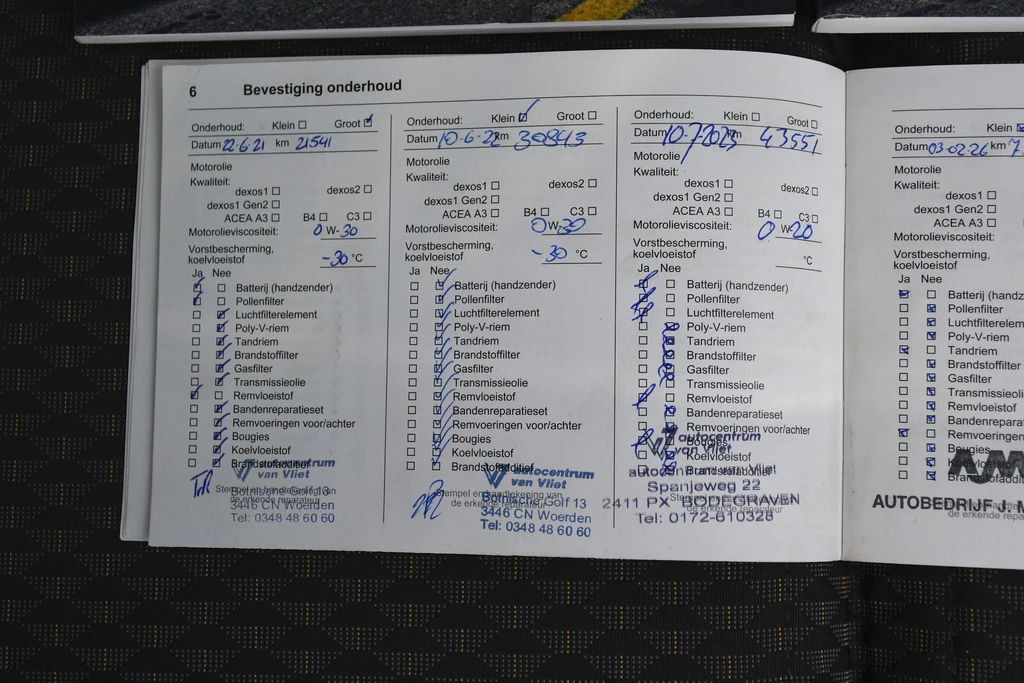 6 Bevestiging onderhoud
Onderhoud: Klein Groot
Datum 22-6-21 km 21541
Motorolie
Kwaliteit:
dexos1 dexos2
dexos1 Gen2
ACEA A3 B4 C3
Motorolieviscositeit: 0 W-30
Vorstbescherming,
koelvloeistof -30 °C
Ja Nee
Batterij (handzender)
Pollenfilter
Luchtfilterelement
Poly-V-riem
Tandriem
Brandstoffilter
Gasfilter
Transmissieolie
Remvloeistof
Bandenreparatieset
Remvoeringen voor/achter
Bougies
Koelvloeistof
Brandstofadditief
autocentrum
van Vliet
Stempel en handtekening van
de erkende reparateur
Botnische Golf 13
3446 CN Woerden
Tel: 0348 48 60 60
Onderhoud: Klein Groot
Datum 10-6-22 km 30843
Motorolie
Kwaliteit:
dexos1 dexos2
dexos1 Gen2
ACEA A3 B4 C3
Motorolieviscositeit: 0 W-30
Vorstbescherming,
koelvloeistof -30 °C
Ja Nee
Batterij (handzender)
Pollenfilter
Luchtfilterelement
Poly-V-riem
Tandriem
Brandstoffilter
Gasfilter
Transmissieolie
Remvloeistof
Bandenreparatieset
Remvoeringen voor/achter
Bougies
Koelvloeistof
Brandstofadditief
autocentrum
van Vliet
Stempel en handtekening van
de erkende reparateur
Botnische Golf 13
3446 CN Woerden
Tel: 0348 48 60 60
Onderhoud: Klein Groot
Datum 10-7-2023 km 43551
Motorolie
Kwaliteit:
dexos1 dexos2
dexos1 Gen2
ACEA A3 B4 C3
Motorolieviscositeit: 0 W-20
Vorstbescherming,
koelvloeistof °C
Ja Nee
Batterij (handzender)
Pollenfilter
Luchtfilterelement
Poly-V-riem
Tandriem
Brandstoffilter
Gasfilter
Transmissieolie
Remvloeistof
Bandenreparatieset
Remvoeringen voor/achter
Bougies
Koelvloeistof
Brandstofadditief
autocentrum
van Vliet
autocentrum van Vliet
Spanjeweg 22
2411 PX BODEGRAVEN
de erkende reparateur
Tel: 0172-610328
Onderhoud: Klein
Datum 03-02-26 km 7
Motorolie
Kwaliteit:
dexos1
dexos1 Gen2
ACEA A3
Motorolieviscositeit:
Vorstbescherming,
koelvloeistof
Ja Nee
Batterij (handz
Pollenfilter
Luchtfilterelem
Poly-V-riem
Tandriem
Brandstoffilter
Gasfilter
Transmissieoli
Remvloeistof
Bandenrepara
Remvoeringen
Bougies
Koelvloeistof
Brandstofad
AM
AUTOBEDRIJF J. M
de erkende repara